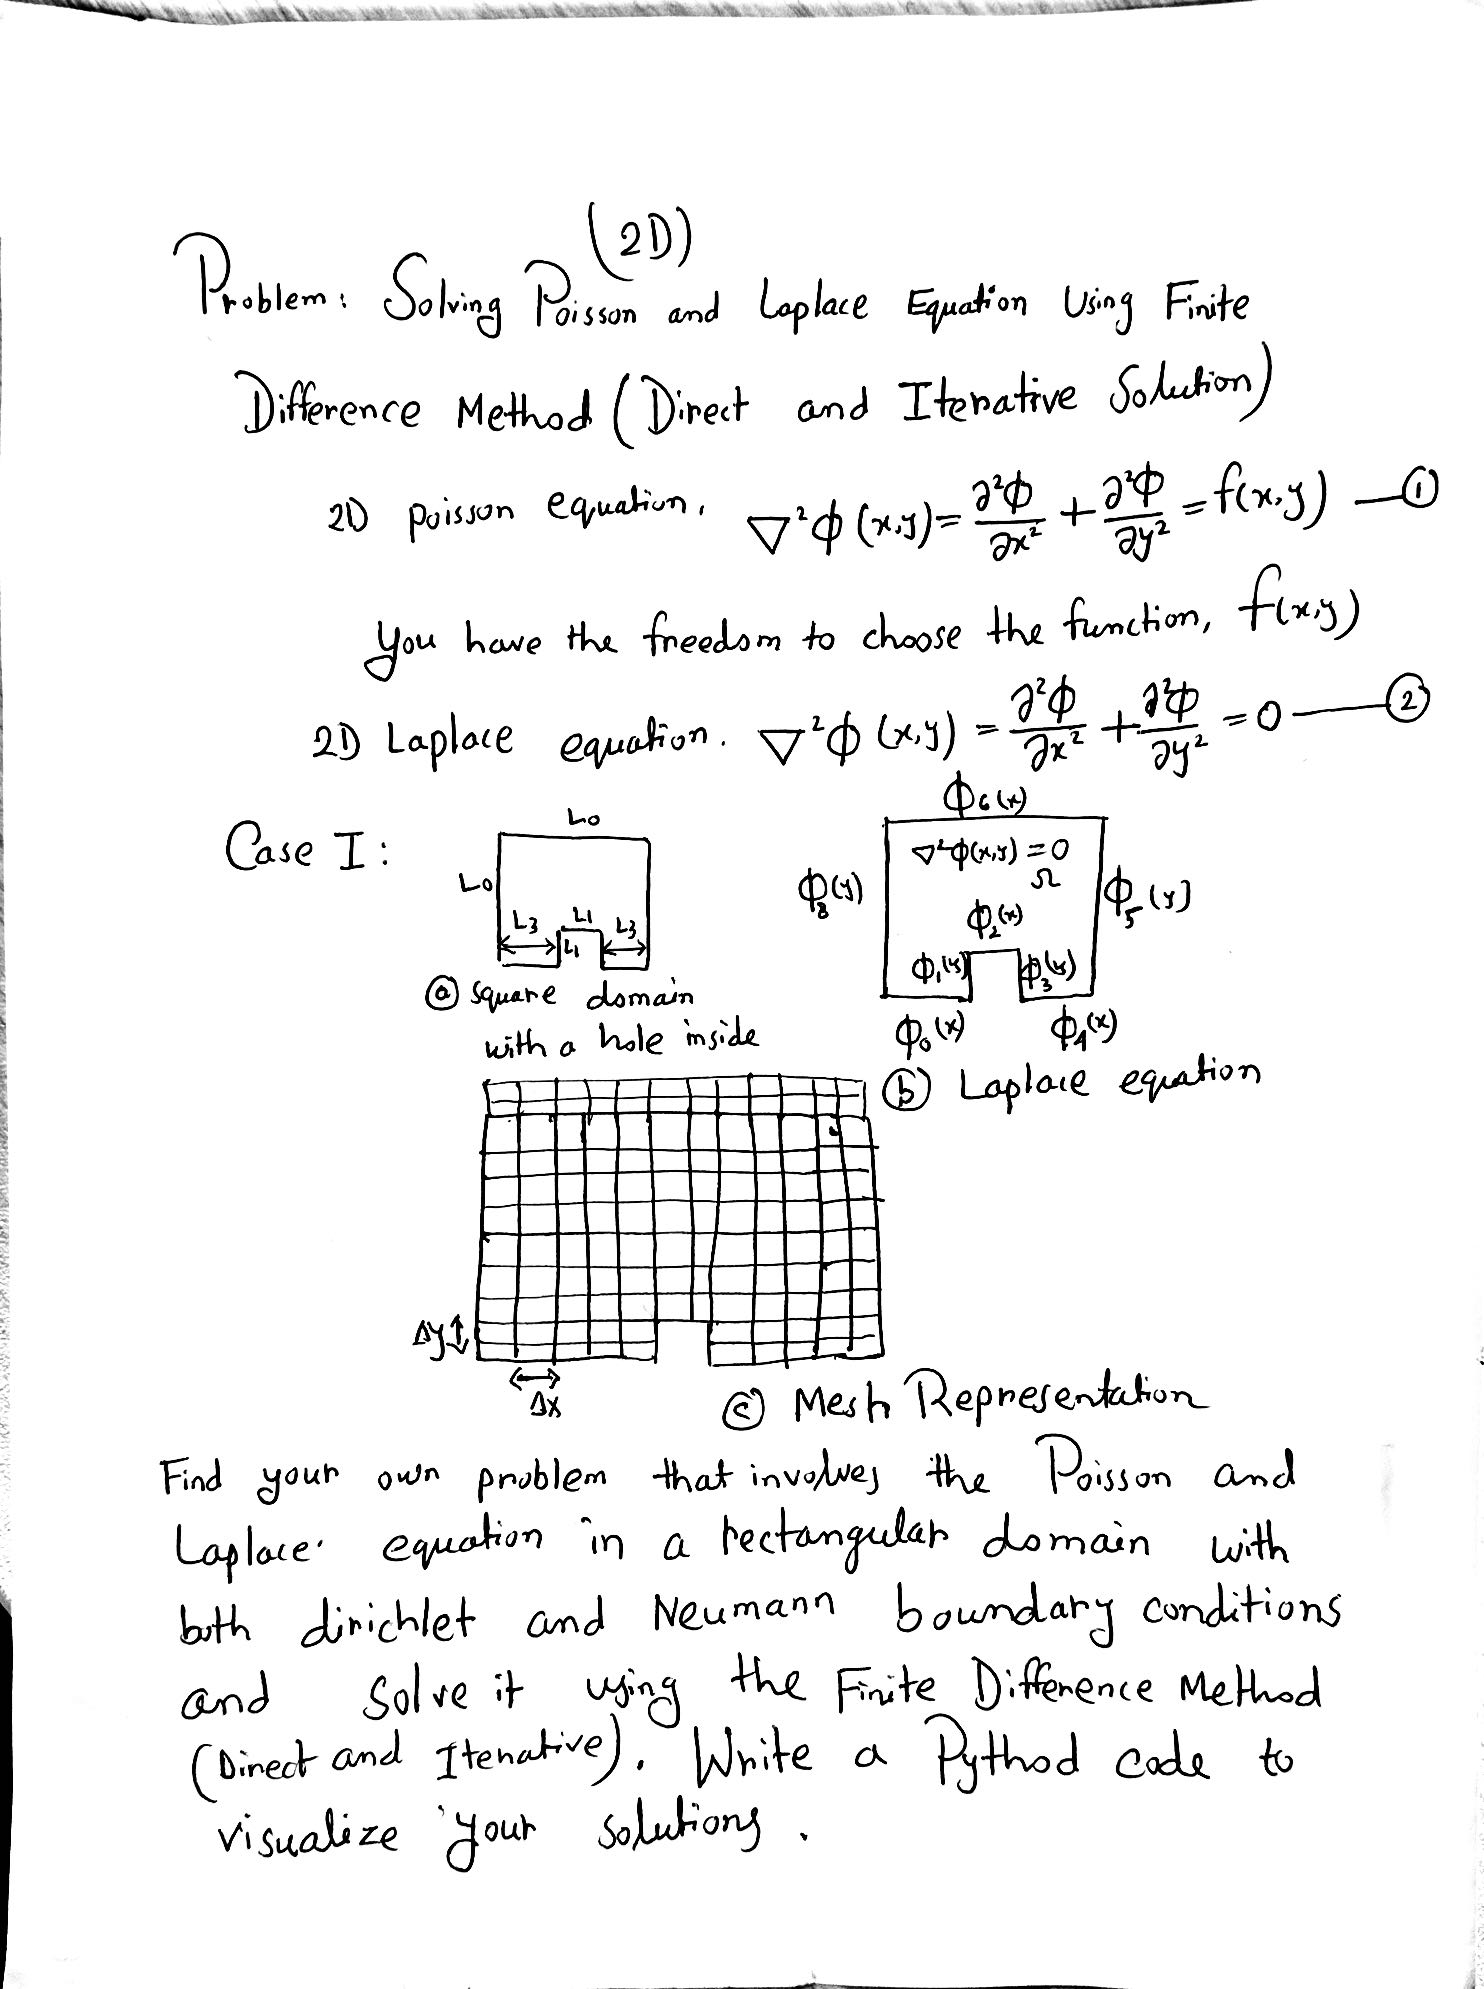 (2D)
Problem: Solving Poisson and Laplace Equation Using Finite
Difference Method (Direct and Iterative Solution)
2D poisson equation, ∇²ϕ(x,y) = ∂²ϕ/∂x² + ∂²ϕ/∂y² = f(x,y) — ①
You have the freedom to choose the function, f(x,y)
2D Laplace equation. ∇²ϕ(x,y) = ∂²ϕ/∂x² + ∂²ϕ/∂y² = 0 — ②
Case I:
L₀
L₀
L₃ L₁ L₃
L₁
ⓐ square domain
with a hole inside
ϕ₆(x)
∇²ϕ(x,y) = 0
Ω
ϕ₈(y) ϕ₅(y)
ϕ₂(x)
ϕ₁(y) ϕ₃(y)
ϕ₀(x) ϕ₄(x)
ⓑ Laplace equation
Δy
Δx
ⓒ Mesh Representation
Find your own problem that involves the Poisson and
Laplace equation in a rectangular domain with
both dirichlet and Neumann boundary conditions
and solve it using the Finite Difference Method
(Direct and Iterative). Write a Pythod code to
visualize your solutions.